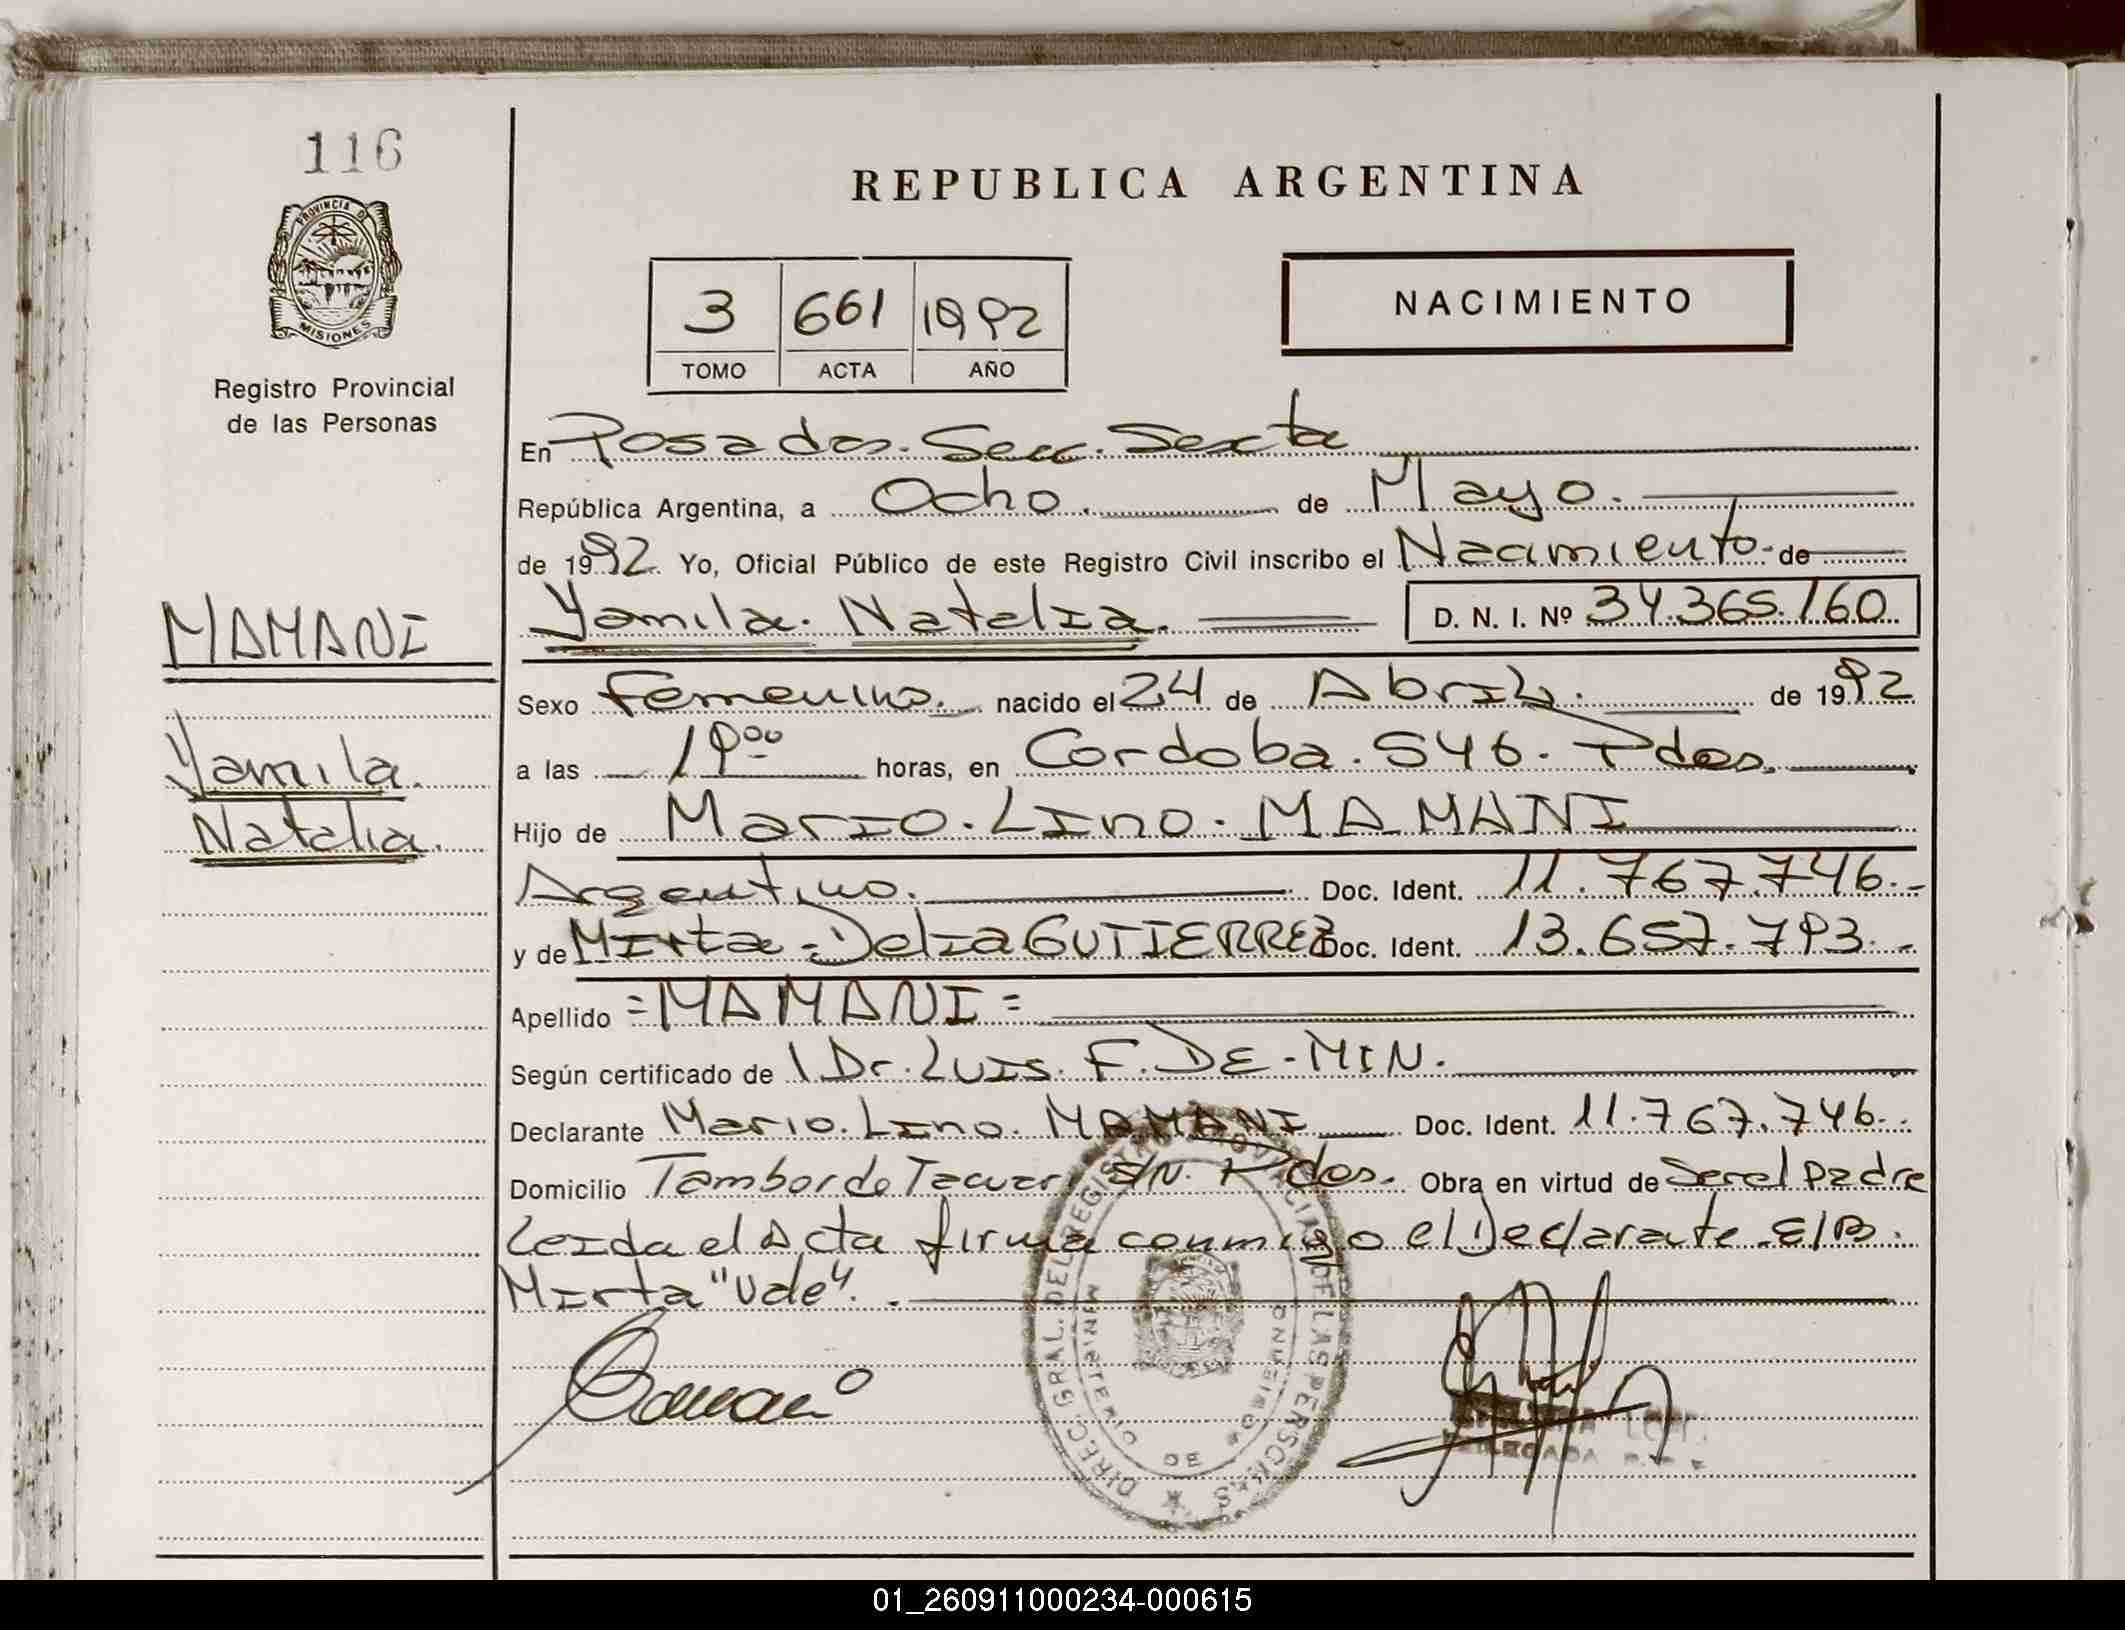 116
PROVINCIA DE
MISIONES
Registro Provincial
de las Personas
REPUBLICA ARGENTINA
3 661 1992
TOMO ACTA AÑO
NACIMIENTO
En Posadas. Secc. Sexta
República Argentina, a Ocho. de Mayo.
de 1992. Yo, Oficial Público de este Registro Civil inscribo el Nacimiento. de
Yamila. Natalia. D. N. I. Nº 34.365.160
MAMANI
Sexo Femenino. nacido el 24 de Abril. de 1992
Yamila.
a las 19⁰⁰ horas, en Cordoba. 546. Pdas.
Natalia.
Hijo de Mario. Lino. MAMANI
Argentino. Doc. Ident. 11.767.746.-
y de Mirta - Delia GUTIERREZ Doc. Ident. 13.657.793.-
Apellido =MAMANI=
Según certificado de Dr. LUIS. F. DE-MIN.
Declarante Mario. Lino. MAMANI Doc. Ident. 11.767.746.-
Domicilio Tambor de Tacuari S/N. Pdas. Obra en virtud de Ser el padre
Leida el Acta firma conmigo el Declarante. E/B.
Mirta "Vale".
DIREC. GRAL. DEL REGISTRO PROVINCIAL DE LAS PERSONAS
MINISTERIO DE GOBIERNO
01_260911000234-000615